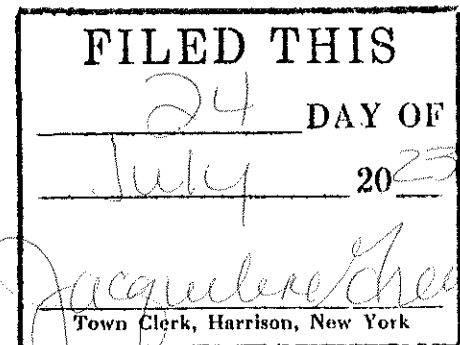 FILED THIS
24 DAY OF
July 2023
Jacqueline Gree
Town Clerk, Harrison, New York